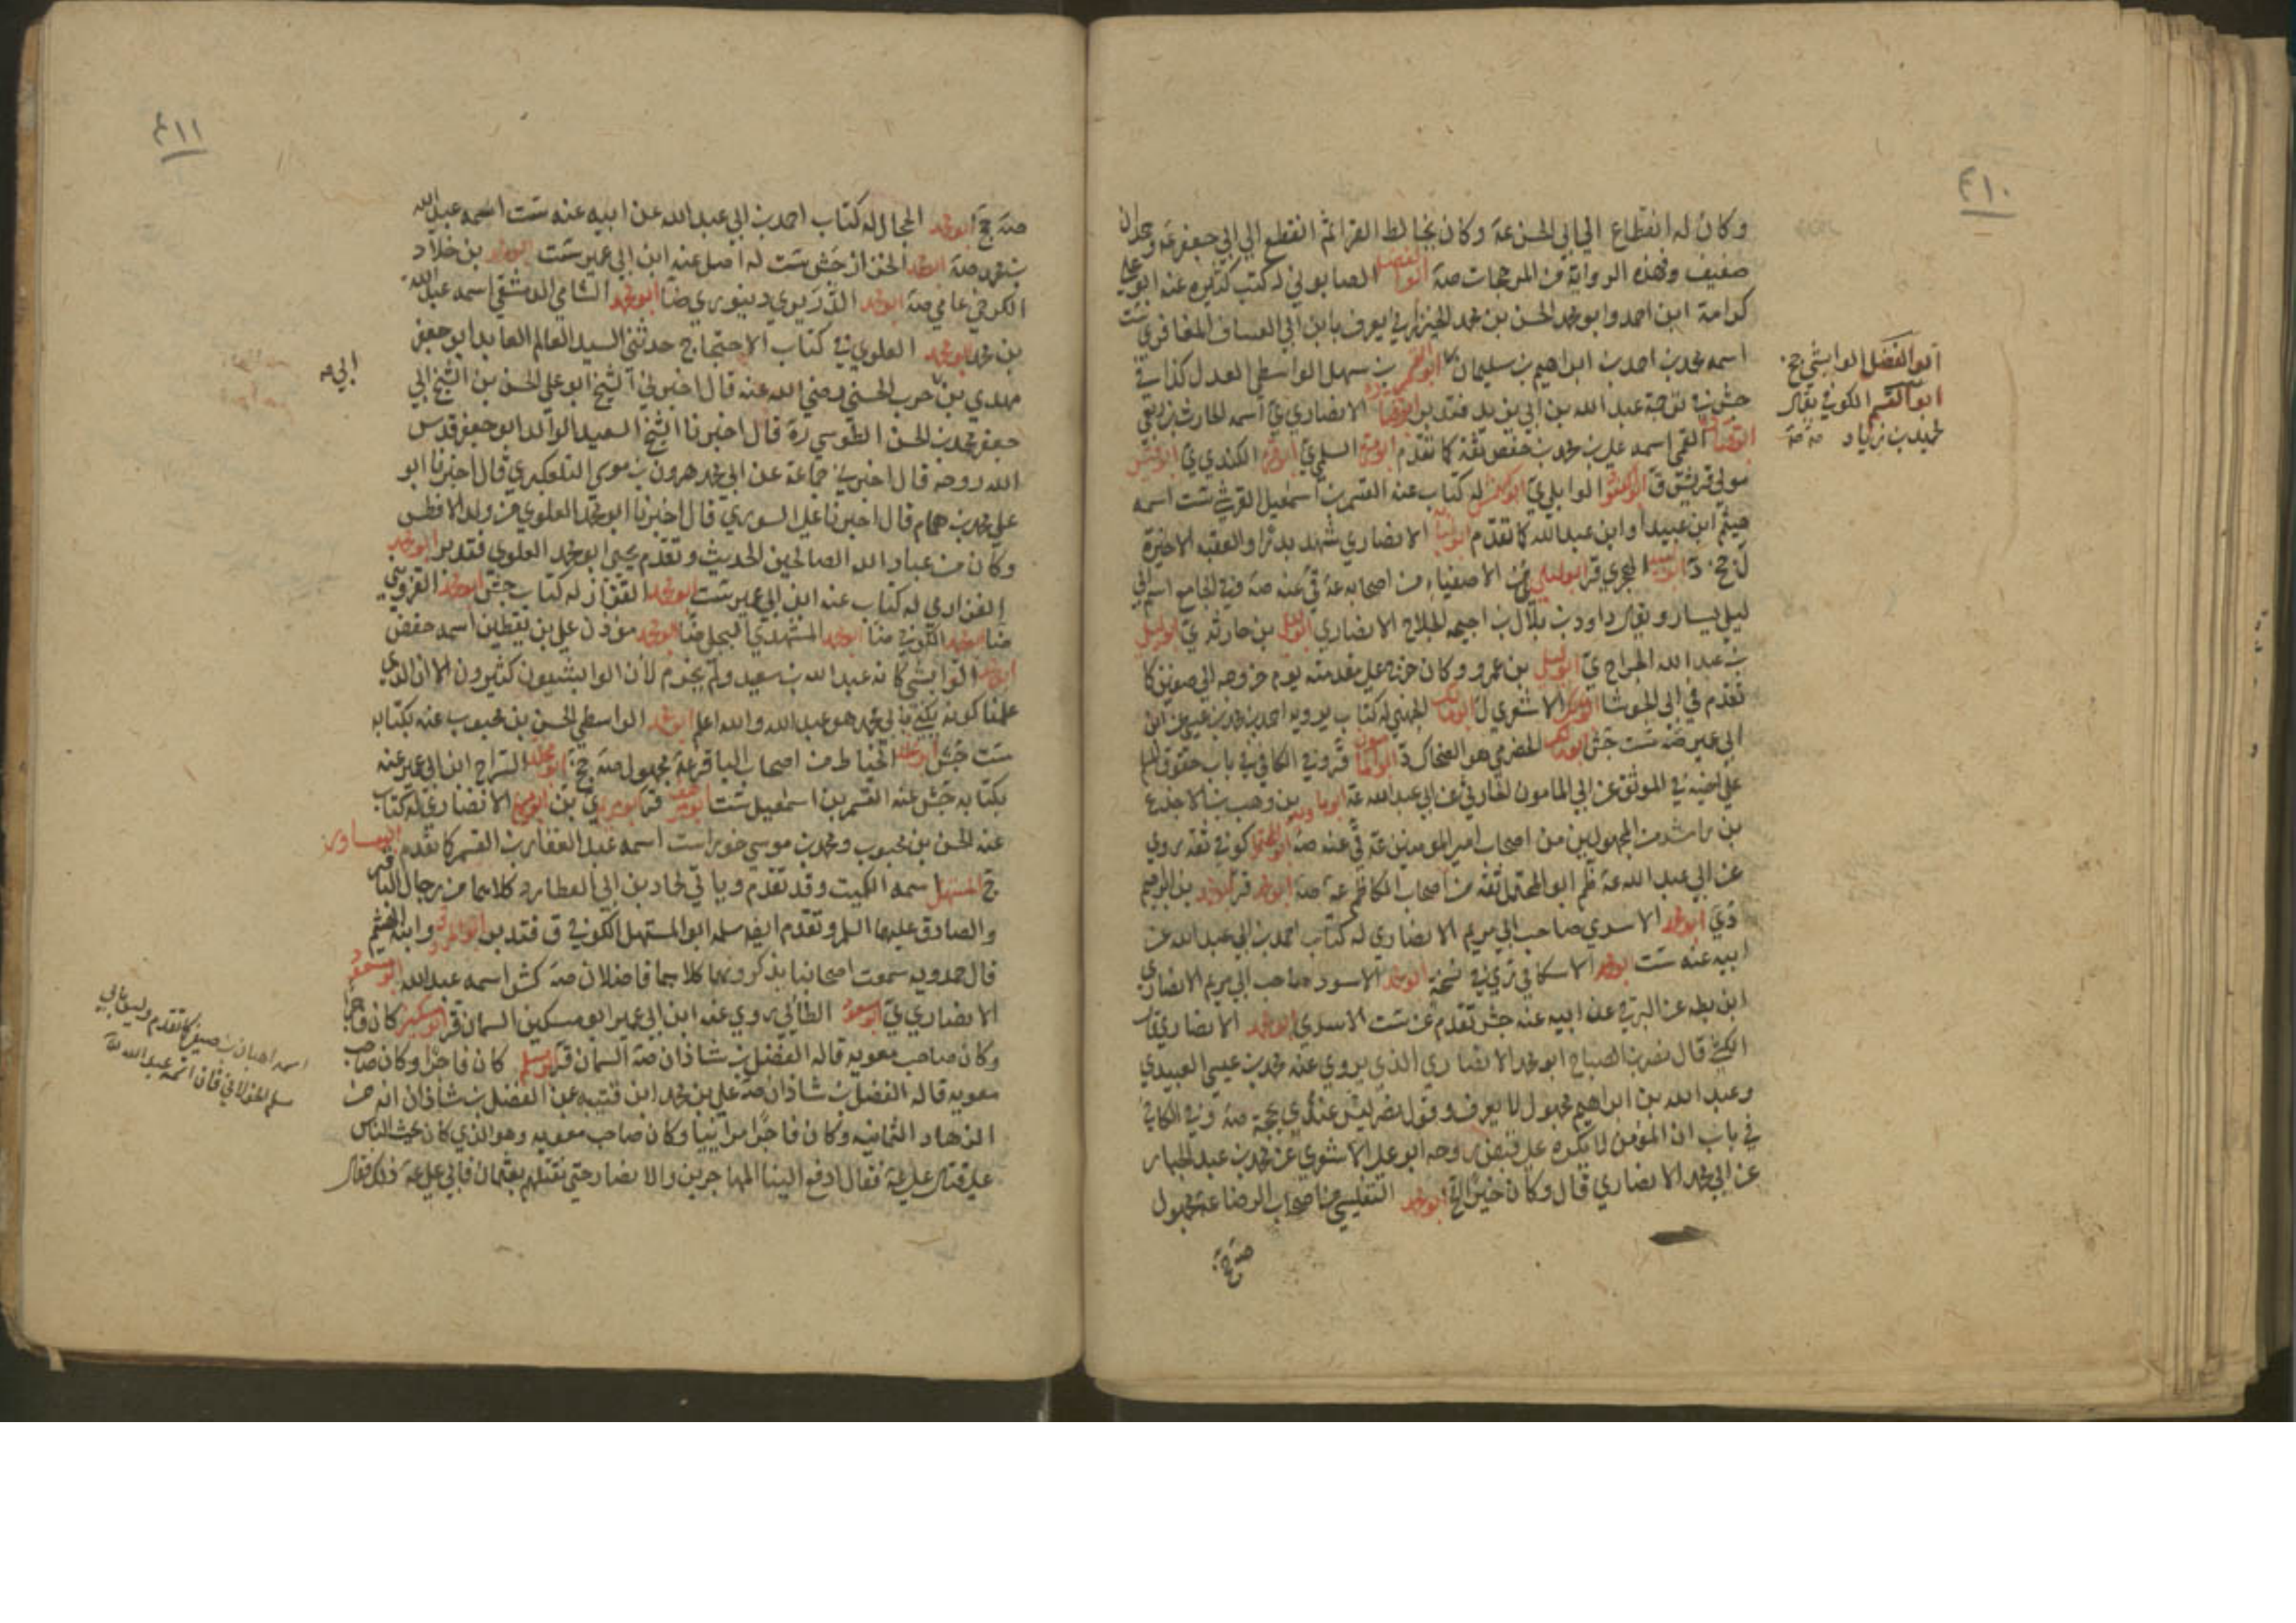 ٤١٠
وكان له انقطاع الى ابي الحسن عة وكان يخالط القرا ثم انقطع الى ابي جعفر عة وجدان
ضعيف وهذه الرواية من المرجحات صة ابو الفضل الصابوني له كتب كثيرة عنه ابو علي
كرامة ابن احمد وابو محمد الحسن بن محمد يعرف بابن ابي العساف المغافري ست
اسمه محمد بن احمد بن ابراهيم بن سليمان ابو القسم بن سهل الواسطي العدل كذا في
جش في ترجمة عبد الله بن ابي زيد فتدبر الانصاري ي اسمه الحارث بن ربعي
القمي اسمه علي بن محمد بن حفص ثقة كما تقدم السلمي ي الكندي ي
مولى قريش ق الوابلي ي له كتاب عنه القسم بن اسمعيل القرشي ست اسمه
هيثم ابن عبيد او ابن عبد الله كما تقدم الانصاري شهد بدرا والعقبه الاخيرة
ل جخ د ابو لبيد الهجري قر ابو ليلى من الاصفياء من اصحابه عة قي عنه صة وفي الجامع اسم ابي
ليلى يسار ويقال داود بن بلال بن احيحه الجلاح الانصاري ابو ليلى بن حارثه ي ابو ليلى
بن عبد الله الجراح ي ابو ليلى بن عمرو وكان على مقدمته يوم خروجه الى صفين كما
تقدم في ابي الجوشا الاشعري ل ابو مالك الجهني له كتاب يرويه احمد بن محمد بن عيسى عن ابن
ابي عمير ضه ست جش ابو مالك الحضرمي هو الضحاك د وفي الكافي في باب حقوق المسلم
على اخيه في الموثق عن ابي المامون الحارثي عن ابي عبد الله عة بن وهب بن الاجدع
بن راشد من المجهولين من اصحاب امير المؤمنين عة قي عنه صة كوفي ثقه روى
عن ابي عبد الله عة ظم ابو المحتمل ثقه من اصحاب الكاظم عة صة ابو محمد قر ابو محمد بن ابراهيم
ابو محمد الاسدي صاحب ابي مريم الانصاري له كتاب احمد بن ابي عبد الله عن
ابيه عنه ست ابو محمد الاسكافي ري في نسخة ابو محمد الاسود صاحب ابي مريم الانصاري
ابن بطه عن البرقي عن ابيه عنه جش تقدم عن ست الاسدي ابو محمد الانصاري قال
الكشي قال نصر بن الصباح ابو محمد الانصاري الذي يروي عنه محمد بن عيسى العبيدي
وعبد الله بن ابراهيم مجهول لا يعرف وقول نصر ليس عندي بحجة صة وفي الكافي
في باب ان المؤمن لا يكره على قبض روحه ابو علي الاشعري عن محمد بن عبد الجبار
عن ابي محمد الانصاري قال وكان خيرا الخ ابو محمد التفليسي من اصحاب الرضا عة مجهول
صة جخ
ابو الفضل الوابشي جخ
ابو القسم الكوفي يقال
حميد بن زياد صة
٤١١
صة جخ ابو محمد الحجال له كتاب احمد بن ابي عبد الله عن ابيه عنه ست اسمه عبد الله
بن محمد صة ابو محمد الخزاز جش ست له اصل عنه ابن ابي عمير ست ابو محمد بن خلاد
الكرخي عامي صة ابو محمد دينوري ضا ابو محمد الشامي الدمشقي اسمه عبد الله
بن محمد ابو محمد العلوي في كتاب الاحتجاج حدثني السيد العالم العابد ابو جعفر
مهدي بن حرب الحسني رضي الله عنه قال اخبرني الشيخ ابو علي الحسن بن الشيخ ابي
جعفر محمد بن الحسن الطوسي رة قال اخبرنا الشيخ السعيد الوالد ابو جعفر قدس
الله روحه قال اخبرني جماعة عن ابي محمد هرون بن موسى التلعكبري قال اخبرنا ابو
علي محمد بن همام قال اخبرنا علي السوري قال اخبرنا ابو محمد العلوي من ولد الافطس
وكان من عباد الله الصالحين الحديث وتقدم يحيى ابو محمد العلوي فتدبر ابو محمد
الفزاري له كتاب عنه ابن ابي عمير ست ابو محمد القزاز له كتاب جش ابو محمد القزويني
ضا ابو محمد الكوفي ضا ابو محمد المشهدي البجلي ضا ابو محمد مؤذن علي بن يقطين اسمه حفص
ابو محمد الوابشي كانه عبد الله بن سعيد ولم يجزم لان الوابشيون كثيرون الا ان الذي
علمنا كونه يكنى بابي محمد هو عبد الله والله اعلم ابو محمد الواسطي الحسن بن محبوب عنه بكتابه
ست جش ابو مخلد الخياط من اصحاب الباقر عة مجهول صة جخ ابو مخلد السراج ابن ابي عمير عنه
بكتابه جش عنه القسم بن اسمعيل ست ي بن ابو مريم الانصاري له كتاب
عنه الحسن بن محبوب ومحمد بن موسى خوراست اسمه عبد الغفار بن القسم كما تقدم ابو مساور
ج المستهل اسمه الكميت وقد تقدم وياتي لحماد بن ابي العطارد كلاهما من رجال الباقر
والصادق عليهما السلم وتقدم ايضا سلمه ابو المستهل الكوفي ق فتدبر وابنه الهيثم
قال حمدويه سمعت اصحابنا يذكرونهما كلاهما فاضلان صة كش اسمه عبد الله ابو مسعود
الانصاري ي ابو مسعود الطائي روى عنه ابن ابي عمير ابو مسكين السمان قر كان فاجرا
وكان صاحب معويه قاله الفضل بن شاذان صة السمان قر ابو مسلم كان فاجرا وكان صاحب
معويه قاله الفضل بن شاذان صة علي بن محمد ابن قتيبه عن الفضل بن شاذان انه من
الزهاد الثمانيه وكان فاجرا مرائيا وكان صاحب معويه وهو الذي كان يحث الناس
على قتال علي عة فقال ادفع الينا المهاجرين والانصار حتى نقتلهم بعثمان فابى علي عة ذلك فقال
ابي م
اسمه اهبان بن صيفي كما تقدم